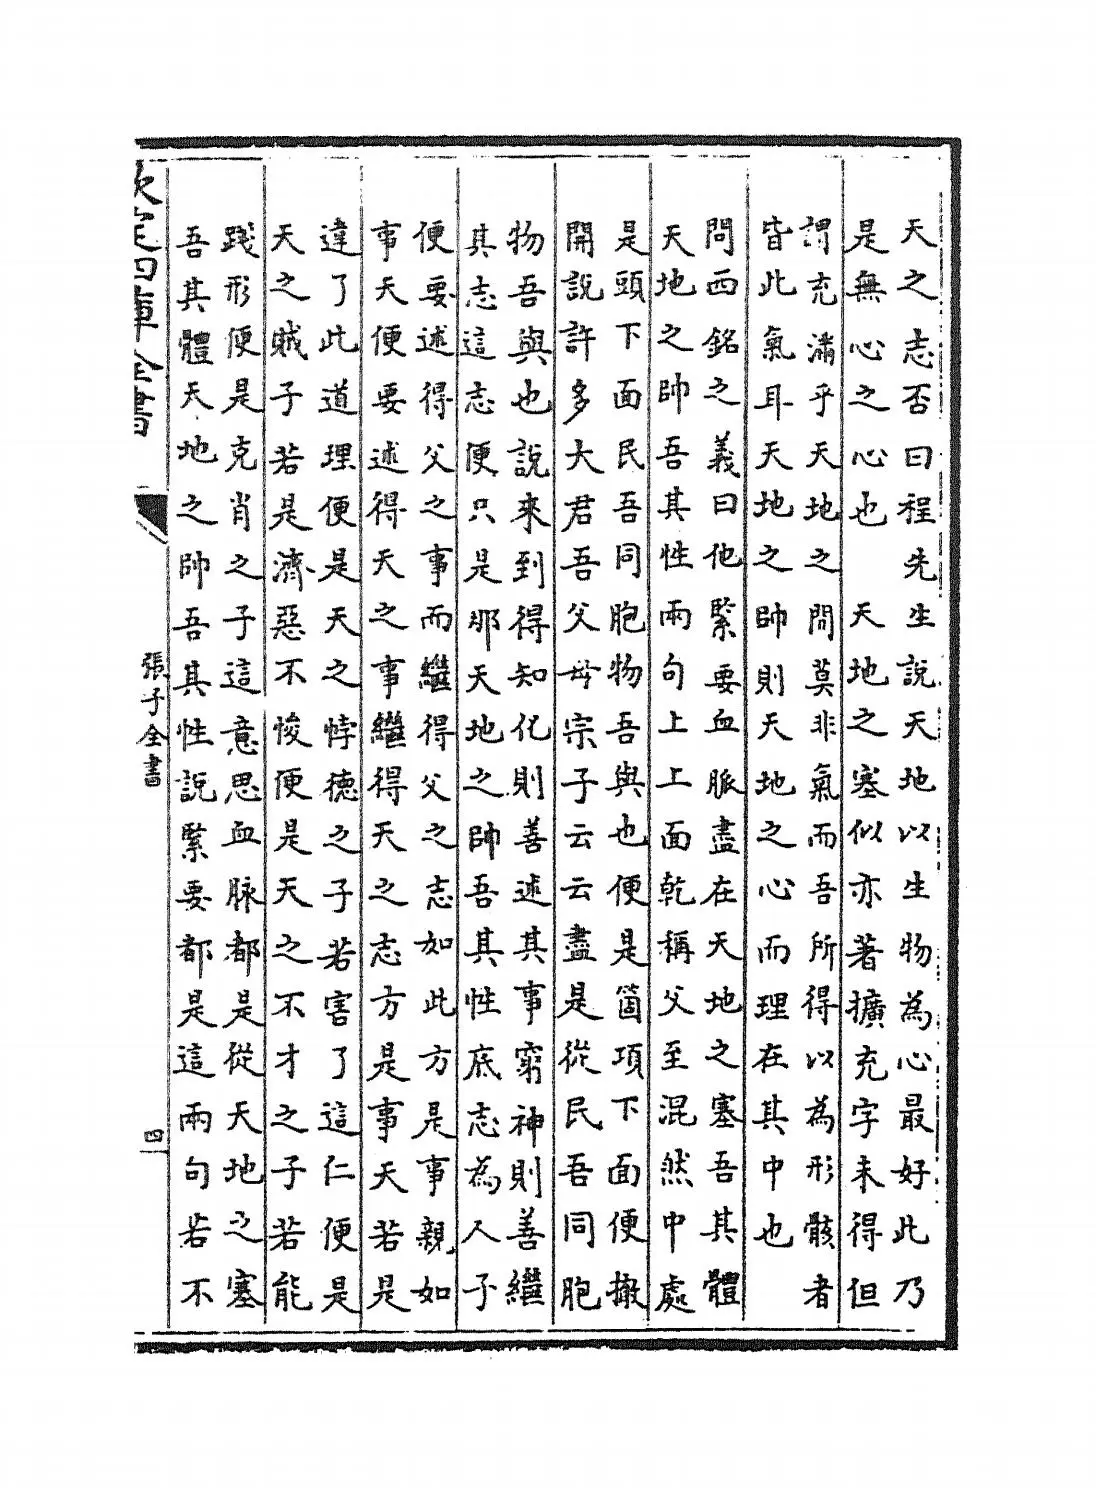 天之志否曰程先生說天地以生物為心最好此乃
是無心之心也　天地之塞似亦著擴充字未得但
謂充滿乎天地之間莫非氣而吾所得以為形骸者
皆此氣耳天地之帥則天地之心而理在其中也
問西銘之義曰他緊要血脈盡在天地之塞吾其體
天地之帥吾其性兩句上上面乾稱父至混然中處
是頭下面民吾同胞物吾與也便是箇項下面便撒
開說許多大君吾父母宗子云云盡是從民吾同胞
物吾與也說來到得知化則善述其事窮神則善繼
其志這志便只是那天地之帥吾其性底志為人子
便要述得父之事而繼得父之志如此方是事親如
事天便要述得天之事繼得天之志方是事天若是
違了此道理便是天之悖德之子若害了這仁便是
天之賊子若是濟惡不悛便是天之不才之子若能
踐形便是克肖之子這意思血脉都是從天地之塞
吾其體天地之帥吾其性說緊要都是這兩句若不
欽定四庫全書
張子全書
四